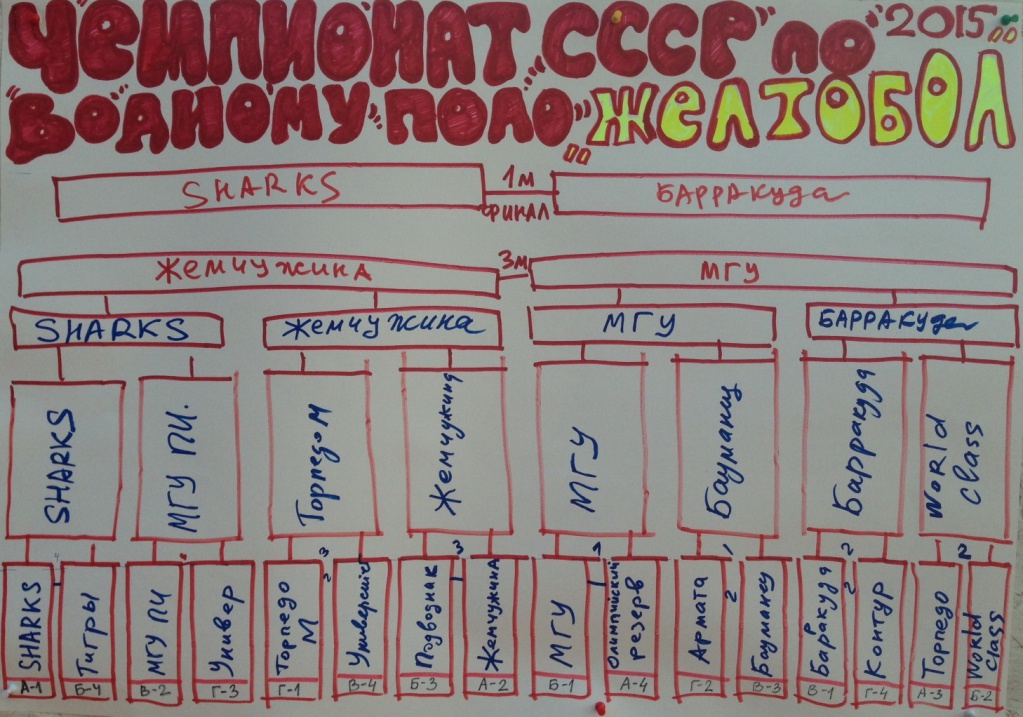 ЧЕМПИОНАТ СССР ПО "2015"
ВОДНОМУ ПОЛО "ЖЕЛТОБОЛ"
SHARKS 1м БАРРАКУДА
ФИНАЛ
ЖЕМЧУЖИНА 3м МГУ
SHARKS ЖЕМЧУЖИНА МГУ БАРРАКУДА
SHARKS МГУ ПИ. Торпедо М Жемчужина МГУ Бауманец Барракуда World Class
SHARKS Тигры МГУ ПИ Универ Торпедо М Подводник Жемчужина МГУ Олимпийский резерв Армата Бауманец Баракуда Контур Торпедо World Class
А-1 Б-4 В-2 Г-3 Г-1 В-4 Б-3 А-2 Б-1 А-4 Г-2 В-3 В-1 Г-4 А-3 Б-2